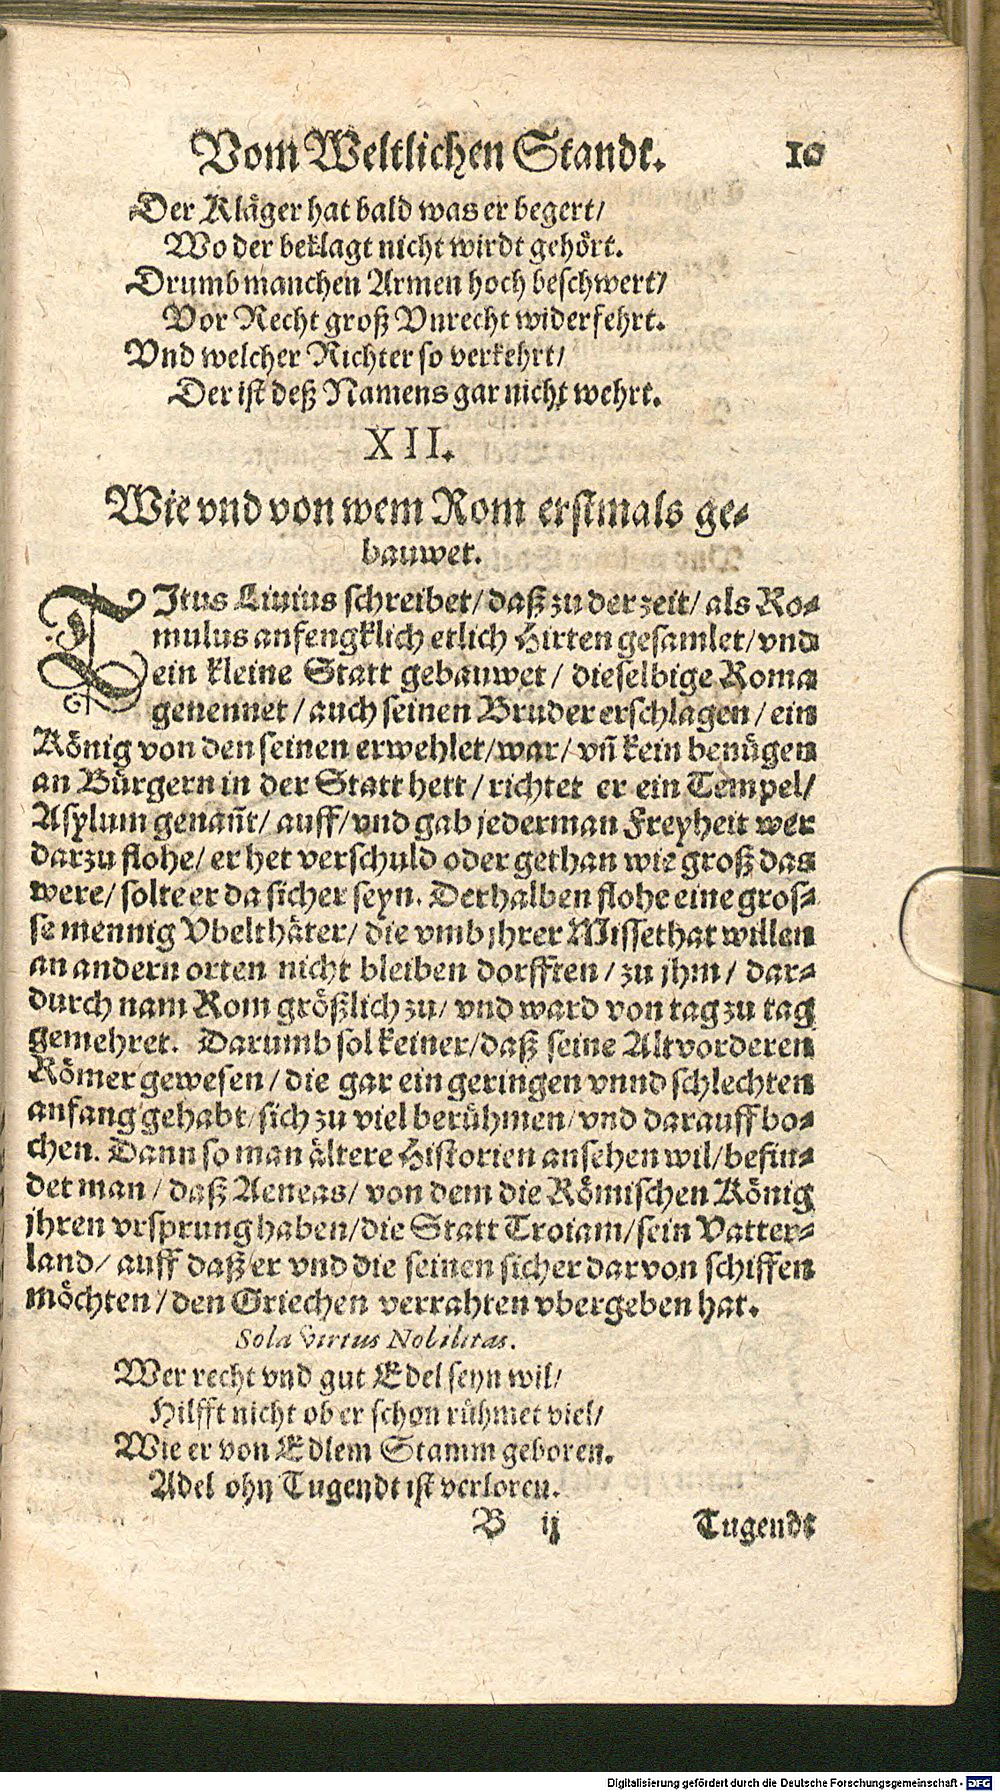 Vom Weltlichen Standt. 10
Der Kläger hat bald was er begert/
Wo der beklagt nicht wirdt gehört.
Drumb manchen Armen hoch beschwert/
Vor Recht groß Vnrecht widerfehrt.
Vnd welcher Richter so verkehrt/
Der ist deß Namens gar nicht wehrt.
XII.
Wie vnd von wem Rom erstmals ge-
bauwet.
TItus Liuius schreibet/ daß zu der zeit/ als Ro-
mulus anfengklich etlich Hirten gesamlet/ vnd
ein kleine Statt gebauwet/ dieselbige Roma
genennet/ auch seinen Bruder erschlagen/ ein
König von den seinen erwehlet/ war/ vñ kein benügen
an Bürgern in der Statt hett/ richtet er ein Tempel/
Asylum genañt/ auff/ vnd gab jederman Freyheit wer
darzu flohe/ er het verschuld oder gethan wie groß das
were/ solte er da sicher seyn. Derhalben flohe eine gros-
se mennig Vbelthäter/ die vmb jhrer Missethat willen
an andern orten nicht bleiben dorfften/ zu jhm/ dar-
durch nam Rom größlich zu/ vnd ward von tag zu tag
gemehret. Darumb sol keiner/ daß seine Altvorderen
Römer gewesen/ die gar ein geringen vnnd schlechten
anfang gehabt/ sich zu viel berühmen/ vnd darauff bo-
chen. Dann so man ältere Historien ansehen wil/ befin-
det man/ daß Aeneas/ von dem die Römischen König
jhren vrsprung haben/ die Statt Troiam/ sein Vatter-
land/ auff daß er vnd die seinen sicher darvon schiffen
möchten/ den Griechen verrahten vbergeben hat.
Sola virtus Nobilitas.
Wer recht vnd gut Edel seyn wil/
Hilfft nicht ob er schon rühmet viel/
Wie er von Edlem Stamm geboren.
Adel ohn Tugendt ist verloren.
B ij Tugendt
Digitalisierung gefördert durch die Deutsche Forschungsgemeinschaft - DFG